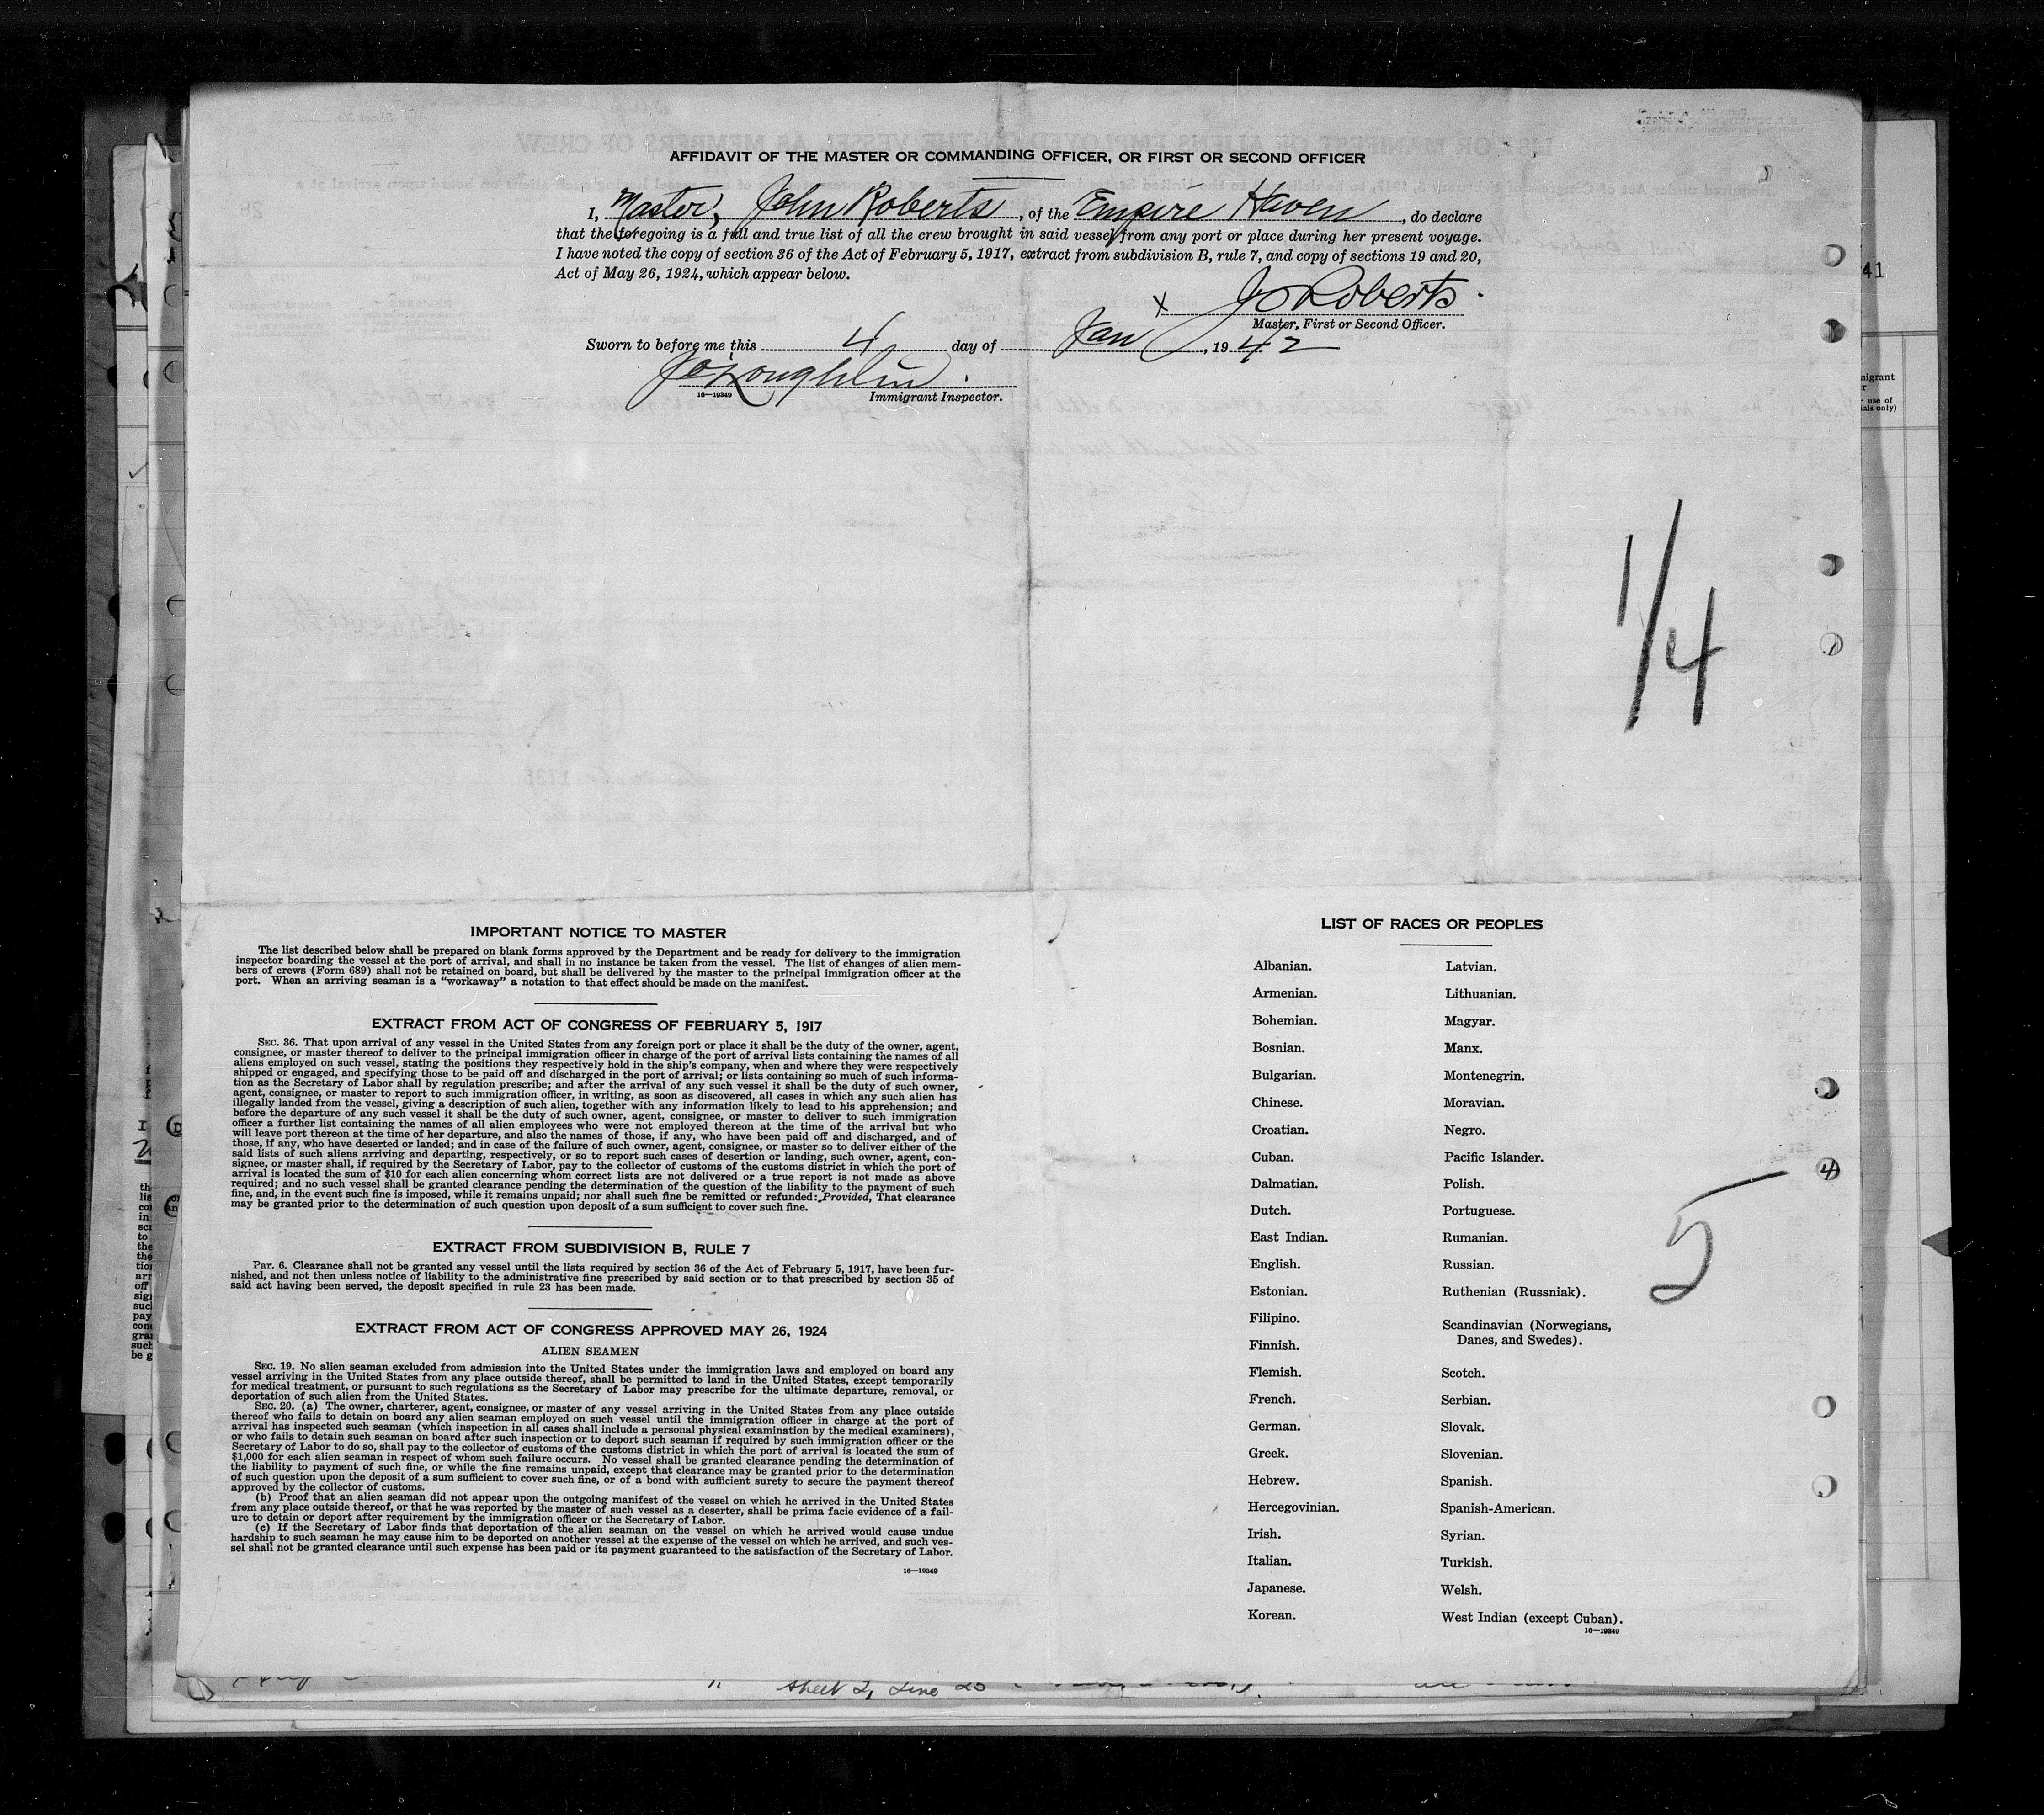 AFFIDAVIT OF THE MASTER OR COMMANDING OFFICER, OR FIRST OR SECOND OFFICER
I, Master, John Roberts, of the Empire Haven, do declare
that the foregoing is a full and true list of all the crew brought in said vessel from any port or place during her present voyage.
I have noted the copy of section 36 of the Act of February 5, 1917, extract from subdivision B, rule 7, and copy of sections 19 and 20,
Act of May 26, 1924, which appear below.
x J Roberts.
Master, First or Second Officer.
Sworn to before me this 4 day of Jan, 1942
J O'Loughlin.
16—19349 Immigrant Inspector.
1/4
IMPORTANT NOTICE TO MASTER
The list described below shall be prepared on blank forms approved by the Department and be ready for delivery to the immigration
inspector boarding the vessel at the port of arrival, and shall in no instance be taken from the vessel. The list of changes of alien mem-
bers of crews (Form 689) shall not be retained on board, but shall be delivered by the master to the principal immigration officer at the
port. When an arriving seaman is a "workaway" a notation to that effect should be made on the manifest.
EXTRACT FROM ACT OF CONGRESS OF FEBRUARY 5, 1917
SEC. 36. That upon arrival of any vessel in the United States from any foreign port or place it shall be the duty of the owner, agent,
consignee, or master thereof to deliver to the principal immigration officer in charge of the port of arrival lists containing the names of all
aliens employed on such vessel, stating the positions they respectively hold in the ship's company, when and where they were respectively
shipped or engaged, and specifying those to be paid off and discharged in the port of arrival; or lists containing so much of such informa-
tion as the Secretary of Labor shall by regulation prescribe; and after the arrival of any such vessel it shall be the duty of such owner,
agent, consignee, or master to report to such immigration officer, in writing, as soon as discovered, all cases in which any such alien has
illegally landed from the vessel, giving a description of such alien, together with any information likely to lead to his apprehension; and
before the departure of any such vessel it shall be the duty of such owner, agent, consignee, or master to deliver to such immigration
officer a further list containing the names of all alien employees who were not employed thereon at the time of the arrival but who
will leave port thereon at the time of her departure, and also the names of those, if any, who have been paid off and discharged, and of
those, if any, who have deserted or landed; and in case of the failure of such owner, agent, consignee, or master so to deliver either of the
said lists of such aliens arriving and departing, respectively, or so to report such cases of desertion or landing, such owner, agent, con-
signee, or master shall, if required by the Secretary of Labor, pay to the collector of customs of the customs district in which the port of
arrival is located the sum of $10 for each alien concerning whom correct lists are not delivered or a true report is not made as above
required; and no such vessel shall be granted clearance pending the determination of the question of the liability to the payment of such
fine, and, in the event such fine is imposed, while it remains unpaid; nor shall such fine be remitted or refunded: Provided, That clearance
may be granted prior to the determination of such question upon deposit of a sum sufficient to cover such fine.
EXTRACT FROM SUBDIVISION B, RULE 7
PAR. 6. Clearance shall not be granted any vessel until the lists required by section 36 of the Act of February 5, 1917, have been fur-
nished, and not then unless notice of liability to the administrative fine prescribed by said section or to that prescribed by section 35 of
said act having been served, the deposit specified in rule 23 has been made.
EXTRACT FROM ACT OF CONGRESS APPROVED MAY 26, 1924
ALIEN SEAMEN
SEC. 19. No alien seaman excluded from admission into the United States under the immigration laws and employed on board any
vessel arriving in the United States from any place outside thereof, shall be permitted to land in the United States, except temporarily
for medical treatment, or pursuant to such regulations as the Secretary of Labor may prescribe for the ultimate departure, removal, or
deportation of such alien from the United States.
SEC. 20. (a) The owner, charterer, agent, consignee, or master of any vessel arriving in the United States from any place outside
thereof who fails to detain on board any alien seaman employed on such vessel until the immigration officer in charge at the port of
arrival has inspected such seaman (which inspection in all cases shall include a personal physical examination by the medical examiners),
or who fails to detain such seaman on board after such inspection or to deport such seaman if required by such immigration officer or the
Secretary of Labor to do so, shall pay to the collector of customs of the customs district in which the port of arrival is located the sum of
$1,000 for each alien seaman in respect of whom such failure occurs. No vessel shall be granted clearance pending the determination of
the liability to payment of such fine, or while the fine remains unpaid, except that clearance may be granted prior to the determination
of such question upon the deposit of a sum sufficient to cover such fine, or of a bond with sufficient surety to secure the payment thereof
approved by the collector of customs.
(b) Proof that an alien seaman did not appear upon the outgoing manifest of the vessel on which he arrived in the United States
from any place outside thereof, or that he was reported by the master of such vessel as a deserter, shall be prima facie evidence of a fail-
ure to detain or deport after requirement by the immigration officer or the Secretary of Labor.
(c) If the Secretary of Labor finds that deportation of the alien seaman on the vessel on which he arrived would cause undue
hardship to such seaman he may cause him to be deported on another vessel at the expense of the vessel on which he arrived, and such ves-
sel shall not be granted clearance until such expense has been paid or its payment guaranteed to the satisfaction of the Secretary of Labor.
16—19349
LIST OF RACES OR PEOPLES
Albanian. Latvian.
Armenian. Lithuanian.
Bohemian. Magyar.
Bosnian. Manx.
Bulgarian. Montenegrin.
Chinese. Moravian.
Croatian. Negro.
Cuban. Pacific Islander.
Dalmatian. Polish.
Dutch. Portuguese.
East Indian. Rumanian.
English. Russian.
Estonian. Ruthenian (Russniak).
Filipino. Scandinavian (Norwegians,
Danes, and Swedes).
Finnish.
Flemish. Scotch.
French. Serbian.
German. Slovak.
Greek. Slovenian.
Hebrew. Spanish.
Hercegovinian. Spanish-American.
Irish. Syrian.
Italian. Turkish.
Japanese. Welsh.
Korean. West Indian (except Cuban).
16—19349
5
4
41
sheet 2, Line 20